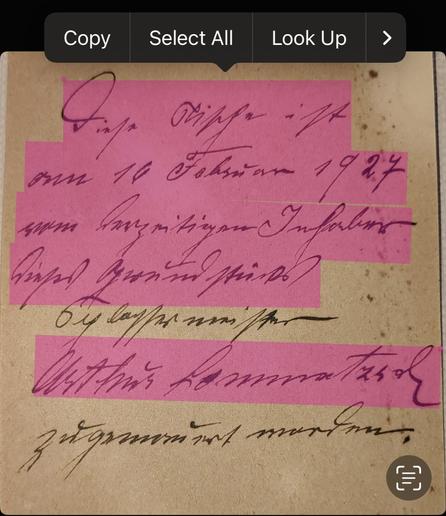 Copy
Select All
Look Up
Diese Nische ist
am 16 Februar 1927
vom derzeitigen Inhaber
dieses Grundstücks
Schlossermeister
Arthur
zugemauert worden.